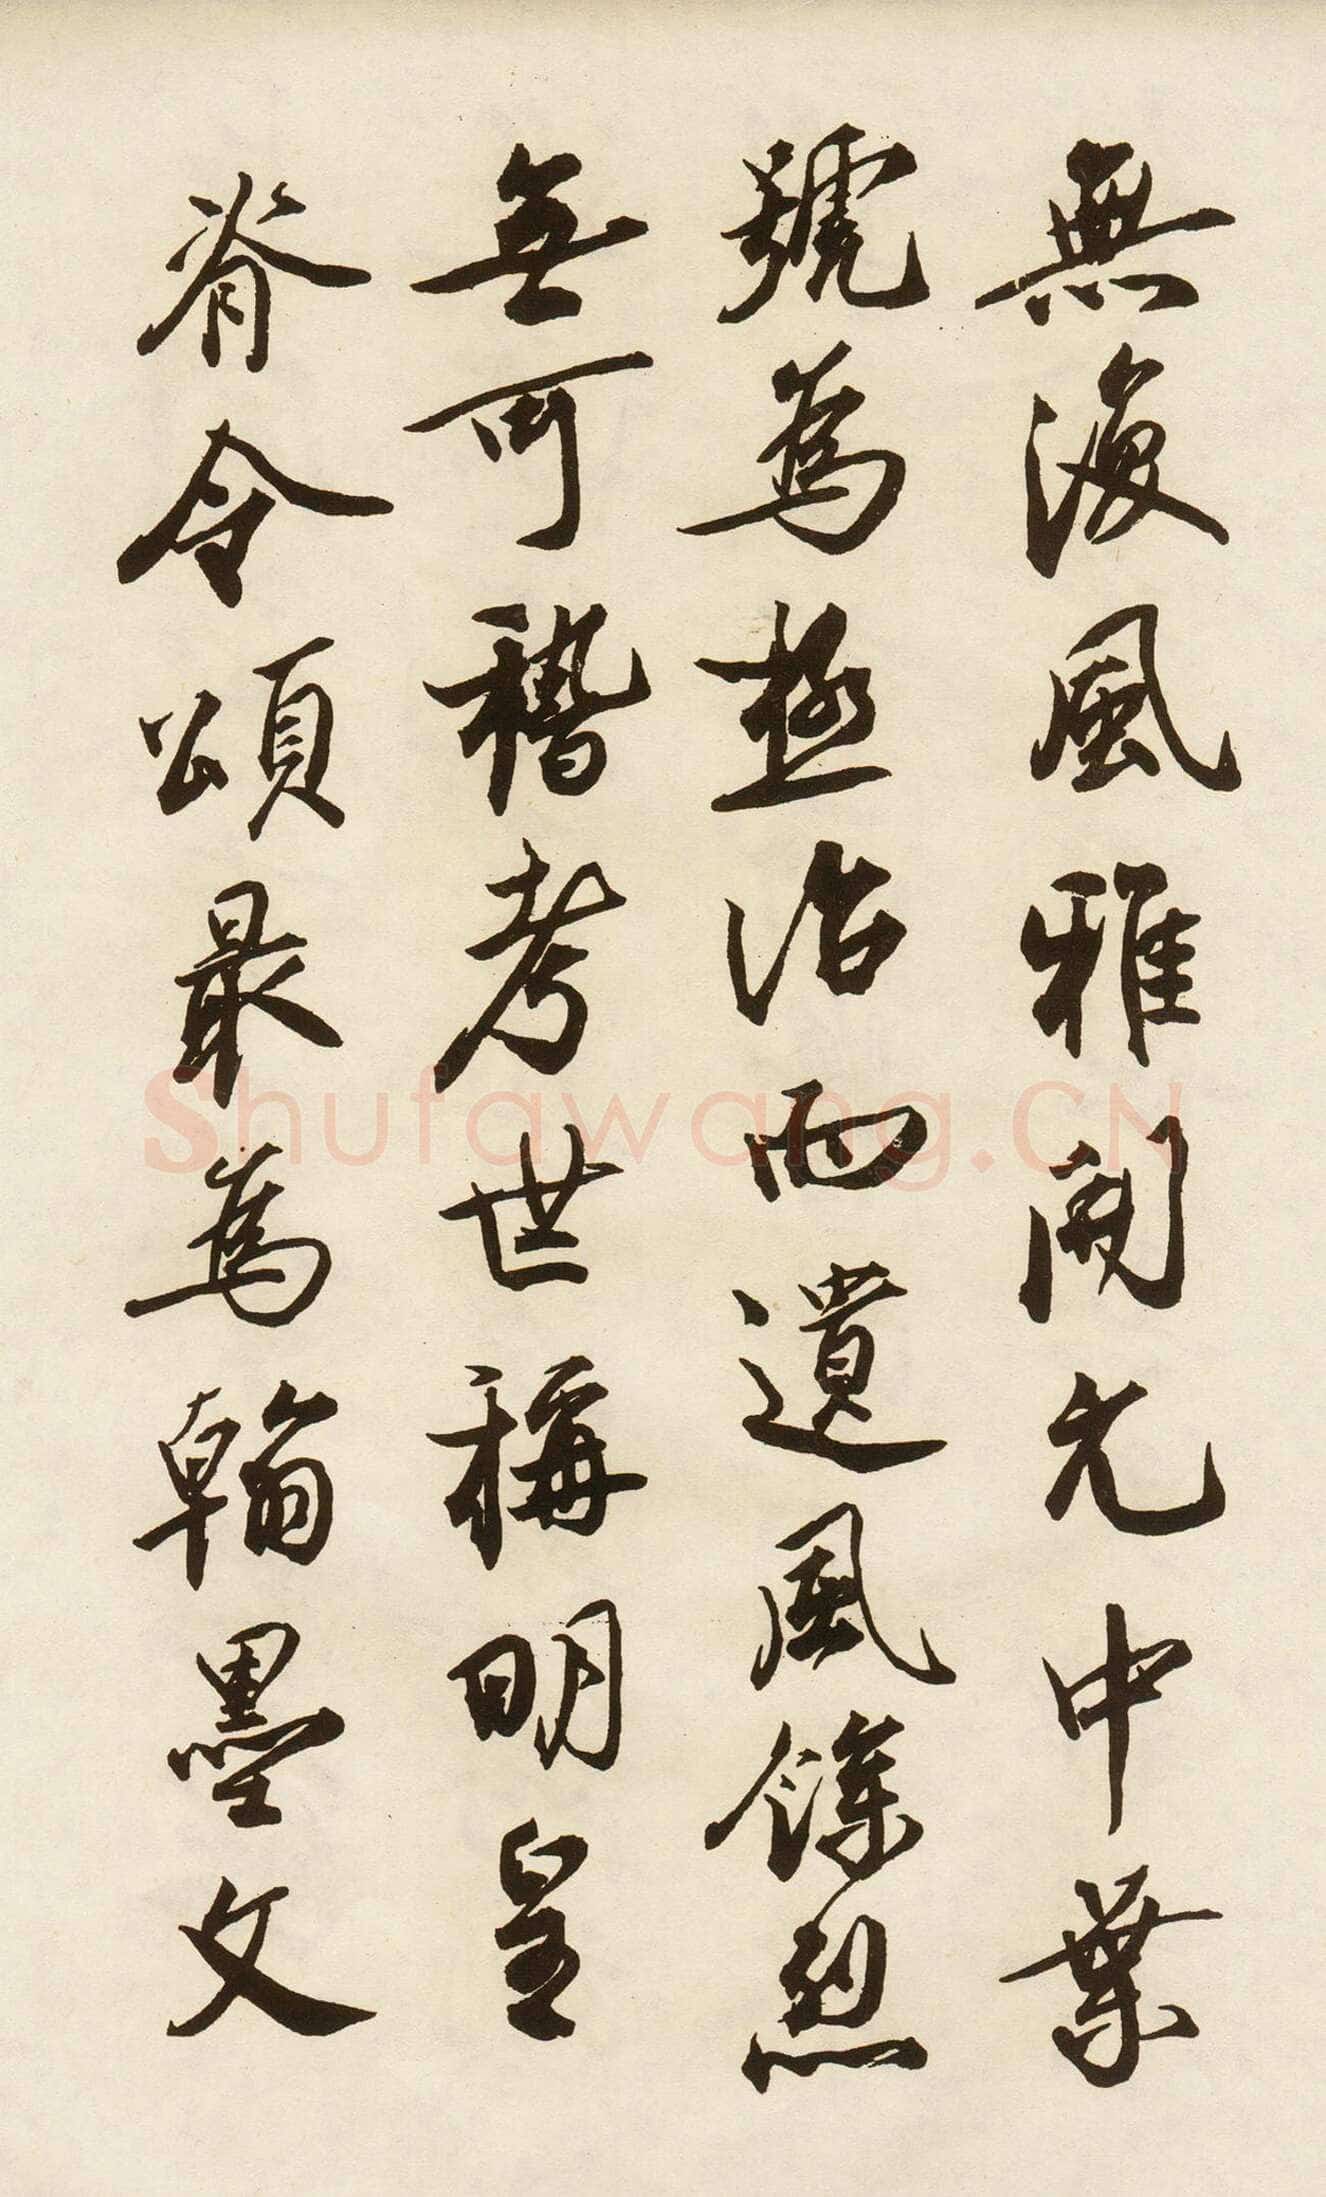 無復風雅開元中葉
號為極治而遺風餘烈
無可稽考世稱明皇
脊令頌最為翰墨文
Shufawang.CN